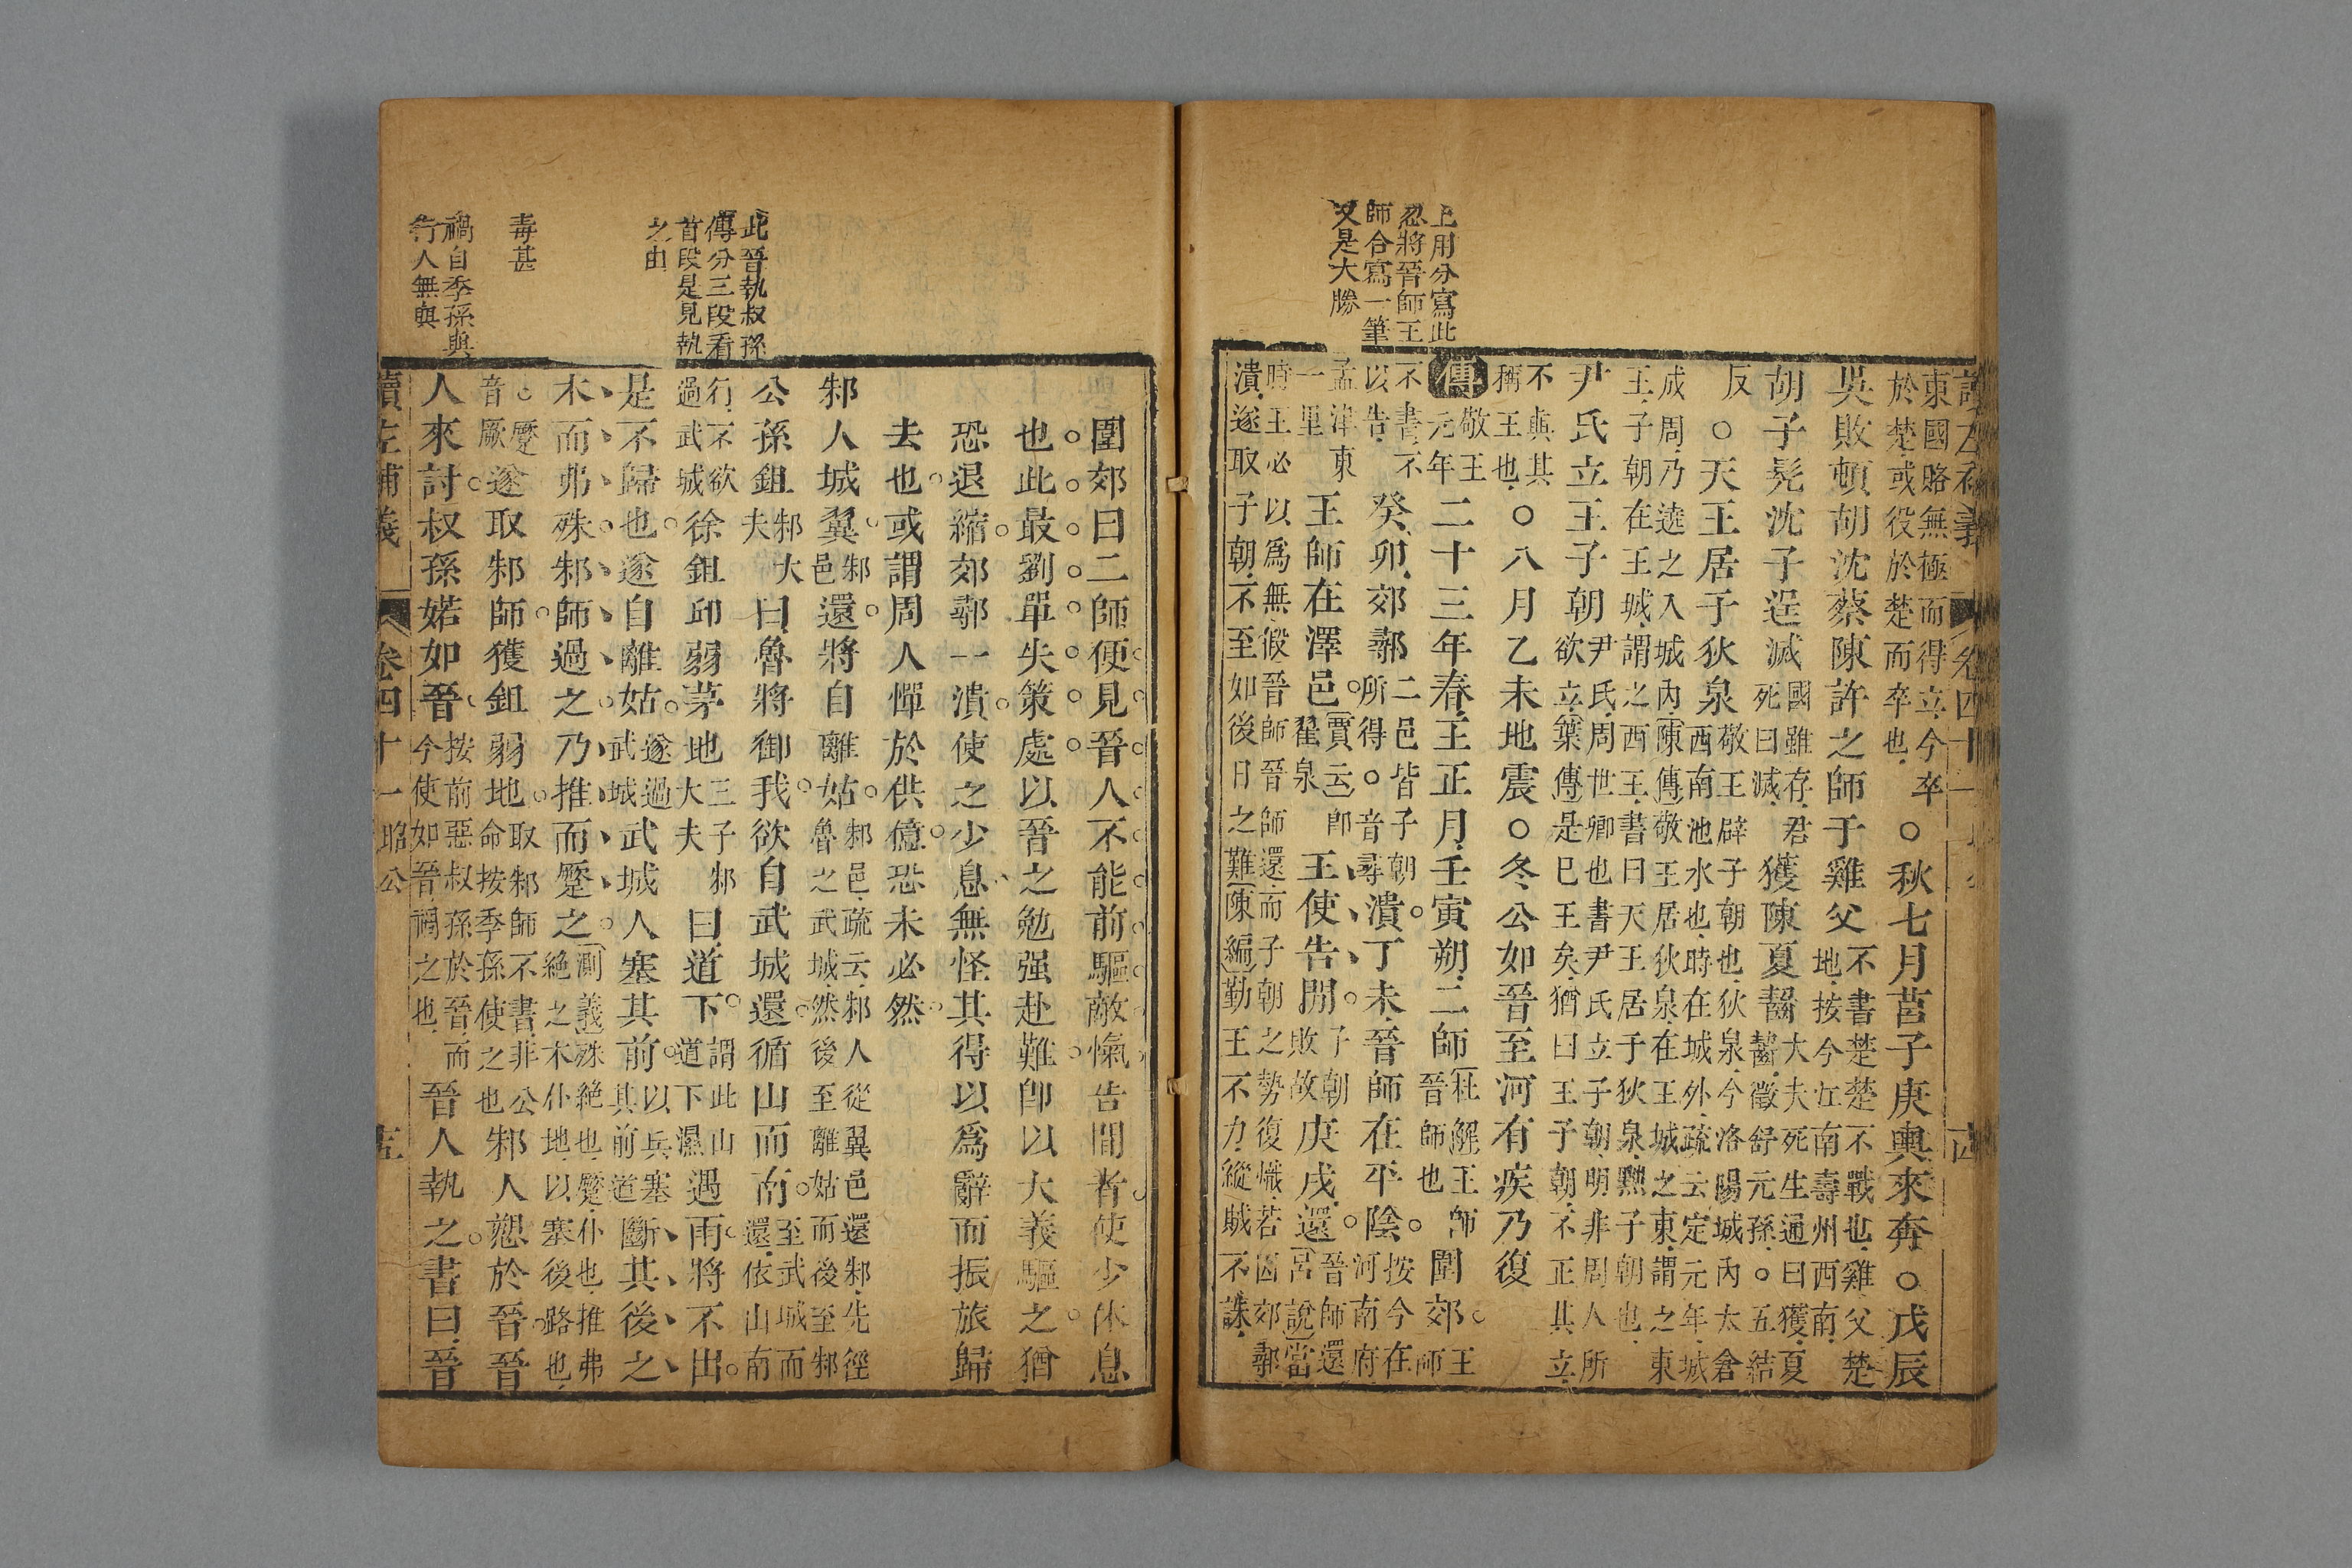 上用分寫此
忽將晉師王
師合寫一筆
又是大勝
東國賂無極而得立今卒於楚或役於楚而卒也○秋七月莒子庚輿來奔○戊辰
吳敗頓胡沈蔡陳許之師于雞父不書楚楚不戰也雞父楚地按今江南壽州西南
胡子髡沈子逞滅國雖存君死曰滅獲陳夏齧大夫死生通曰獲夏齧徵舒元孫○五結
反○天王居于狄泉敬王辟子朝也狄泉今洛陽城內太倉西南池水也時在城外疏云定元年城
成周乃遶之入城內陳傳敬王居狄泉在王城之東謂之東王子朝在王城謂之西王書曰天王居于狄泉黜子朝也
尹氏立王子朝尹氏周世卿也書尹氏立子朝明非周人所欲立葉傳是巳王矣猶曰王子朝不正其立
不與其稱王也○八月乙未地震○冬公如晉至河有疾乃復
傳敬王元年二十三年春王正月壬寅朔二師杜解王師晉師也圍郊王師
不書不以告癸卯郊鄩二邑皆子朝所得○音尋潰丁未晉師在平陰按今在河南府
孟津東一里王師在澤邑賈云即翟泉王使告閒子朝敗故庚戌還晉師還宮說當
時王必以爲無假晉師晉師還而子朝之勢復熾若因郊鄩潰遂取子朝不至如後日之難陳編勤王不力縱賊不誅
此晉執叔孫
傳分三段看
首段是見執
之由
毒甚
禍自季孫與
行人無與
圍郊曰二師便見晉人不能前驅敵愾告間者使少休息
也此最劉單失策處以晉之勉强赴難卽以大義驅之猶
恐退縮郊鄩一潰使之少息無怪其得以爲辭而振旅歸
去也或謂周人憚於供億恐未必然
邾人城翼邾邑還將自離姑邾邑疏云邾人從翼邑還邾先徑魯之武城然後至離姑而後至邾
公孫鉏邾大夫曰魯將御我欲自武城還循山而南至武城而還依山南
行不欲過武城徐鉏邱弱茅地三子邾大夫曰道下謂此山道下濕遇雨將不出
是不歸也遂自離姑遂過武城武城人塞其前以兵塞其前道斷其後之
木而弗殊邾師過之乃推而蹷之測義殊絕也蹷仆也推弗絕之木仆地以塞後路也
○蹷音厥遂取邾師獲鉏弱地取邾師不書非公命按季孫使之也邾人愬於晉晉
人來討叔孫婼如晉按前惡叔孫於晉而今使如晉禍之也晉人執之書曰晉
讀左補義 卷四十一 昭公